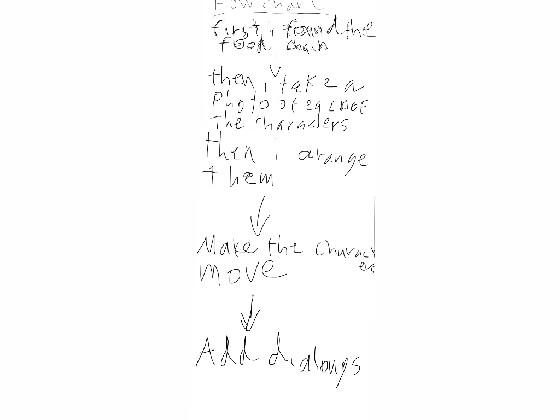 Flowchart
first i found the
food chain
then i take a
Photo of each of
The characters
then i arange
them
Make the charact
ers
move
Add dialongs